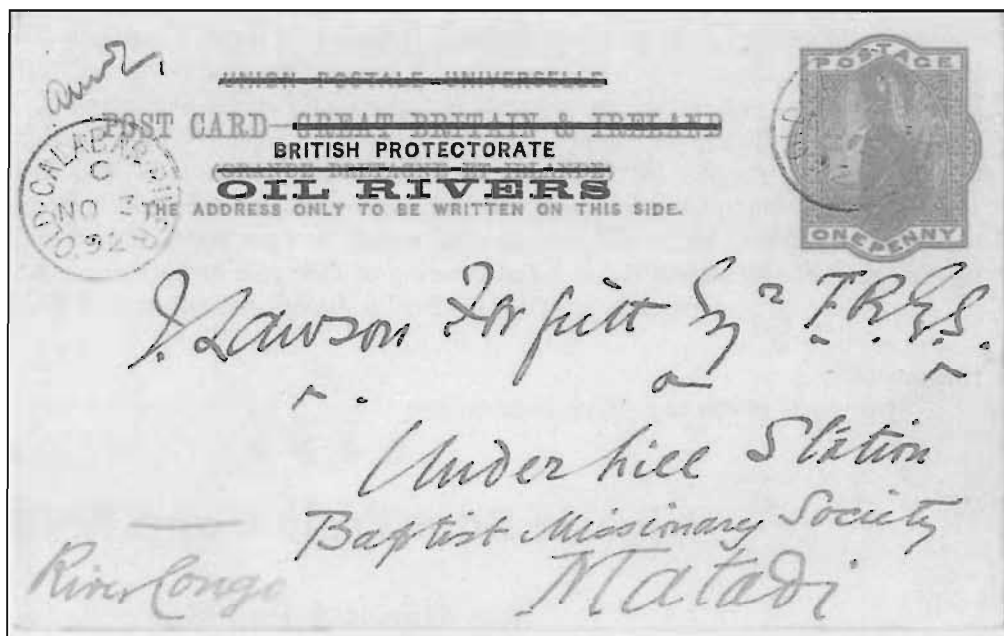 POSTAGE
UNION POSTALE UNIVERSELLE
POST CARD—GREAT BRITAIN & IRELAND
BRITISH PROTECTORATE
(GRANDE BRETAGNE ET IRLANDE)
OIL RIVERS
THE ADDRESS ONLY TO BE WRITTEN ON THIS SIDE.
ONE PENNY
OLD CALABAR RIVER
C
NO
92
J. Lawson Forfeitt Esqre F.R.G.S.
Underhill Station
Baptist Missionary Society
Matadi
River Congo